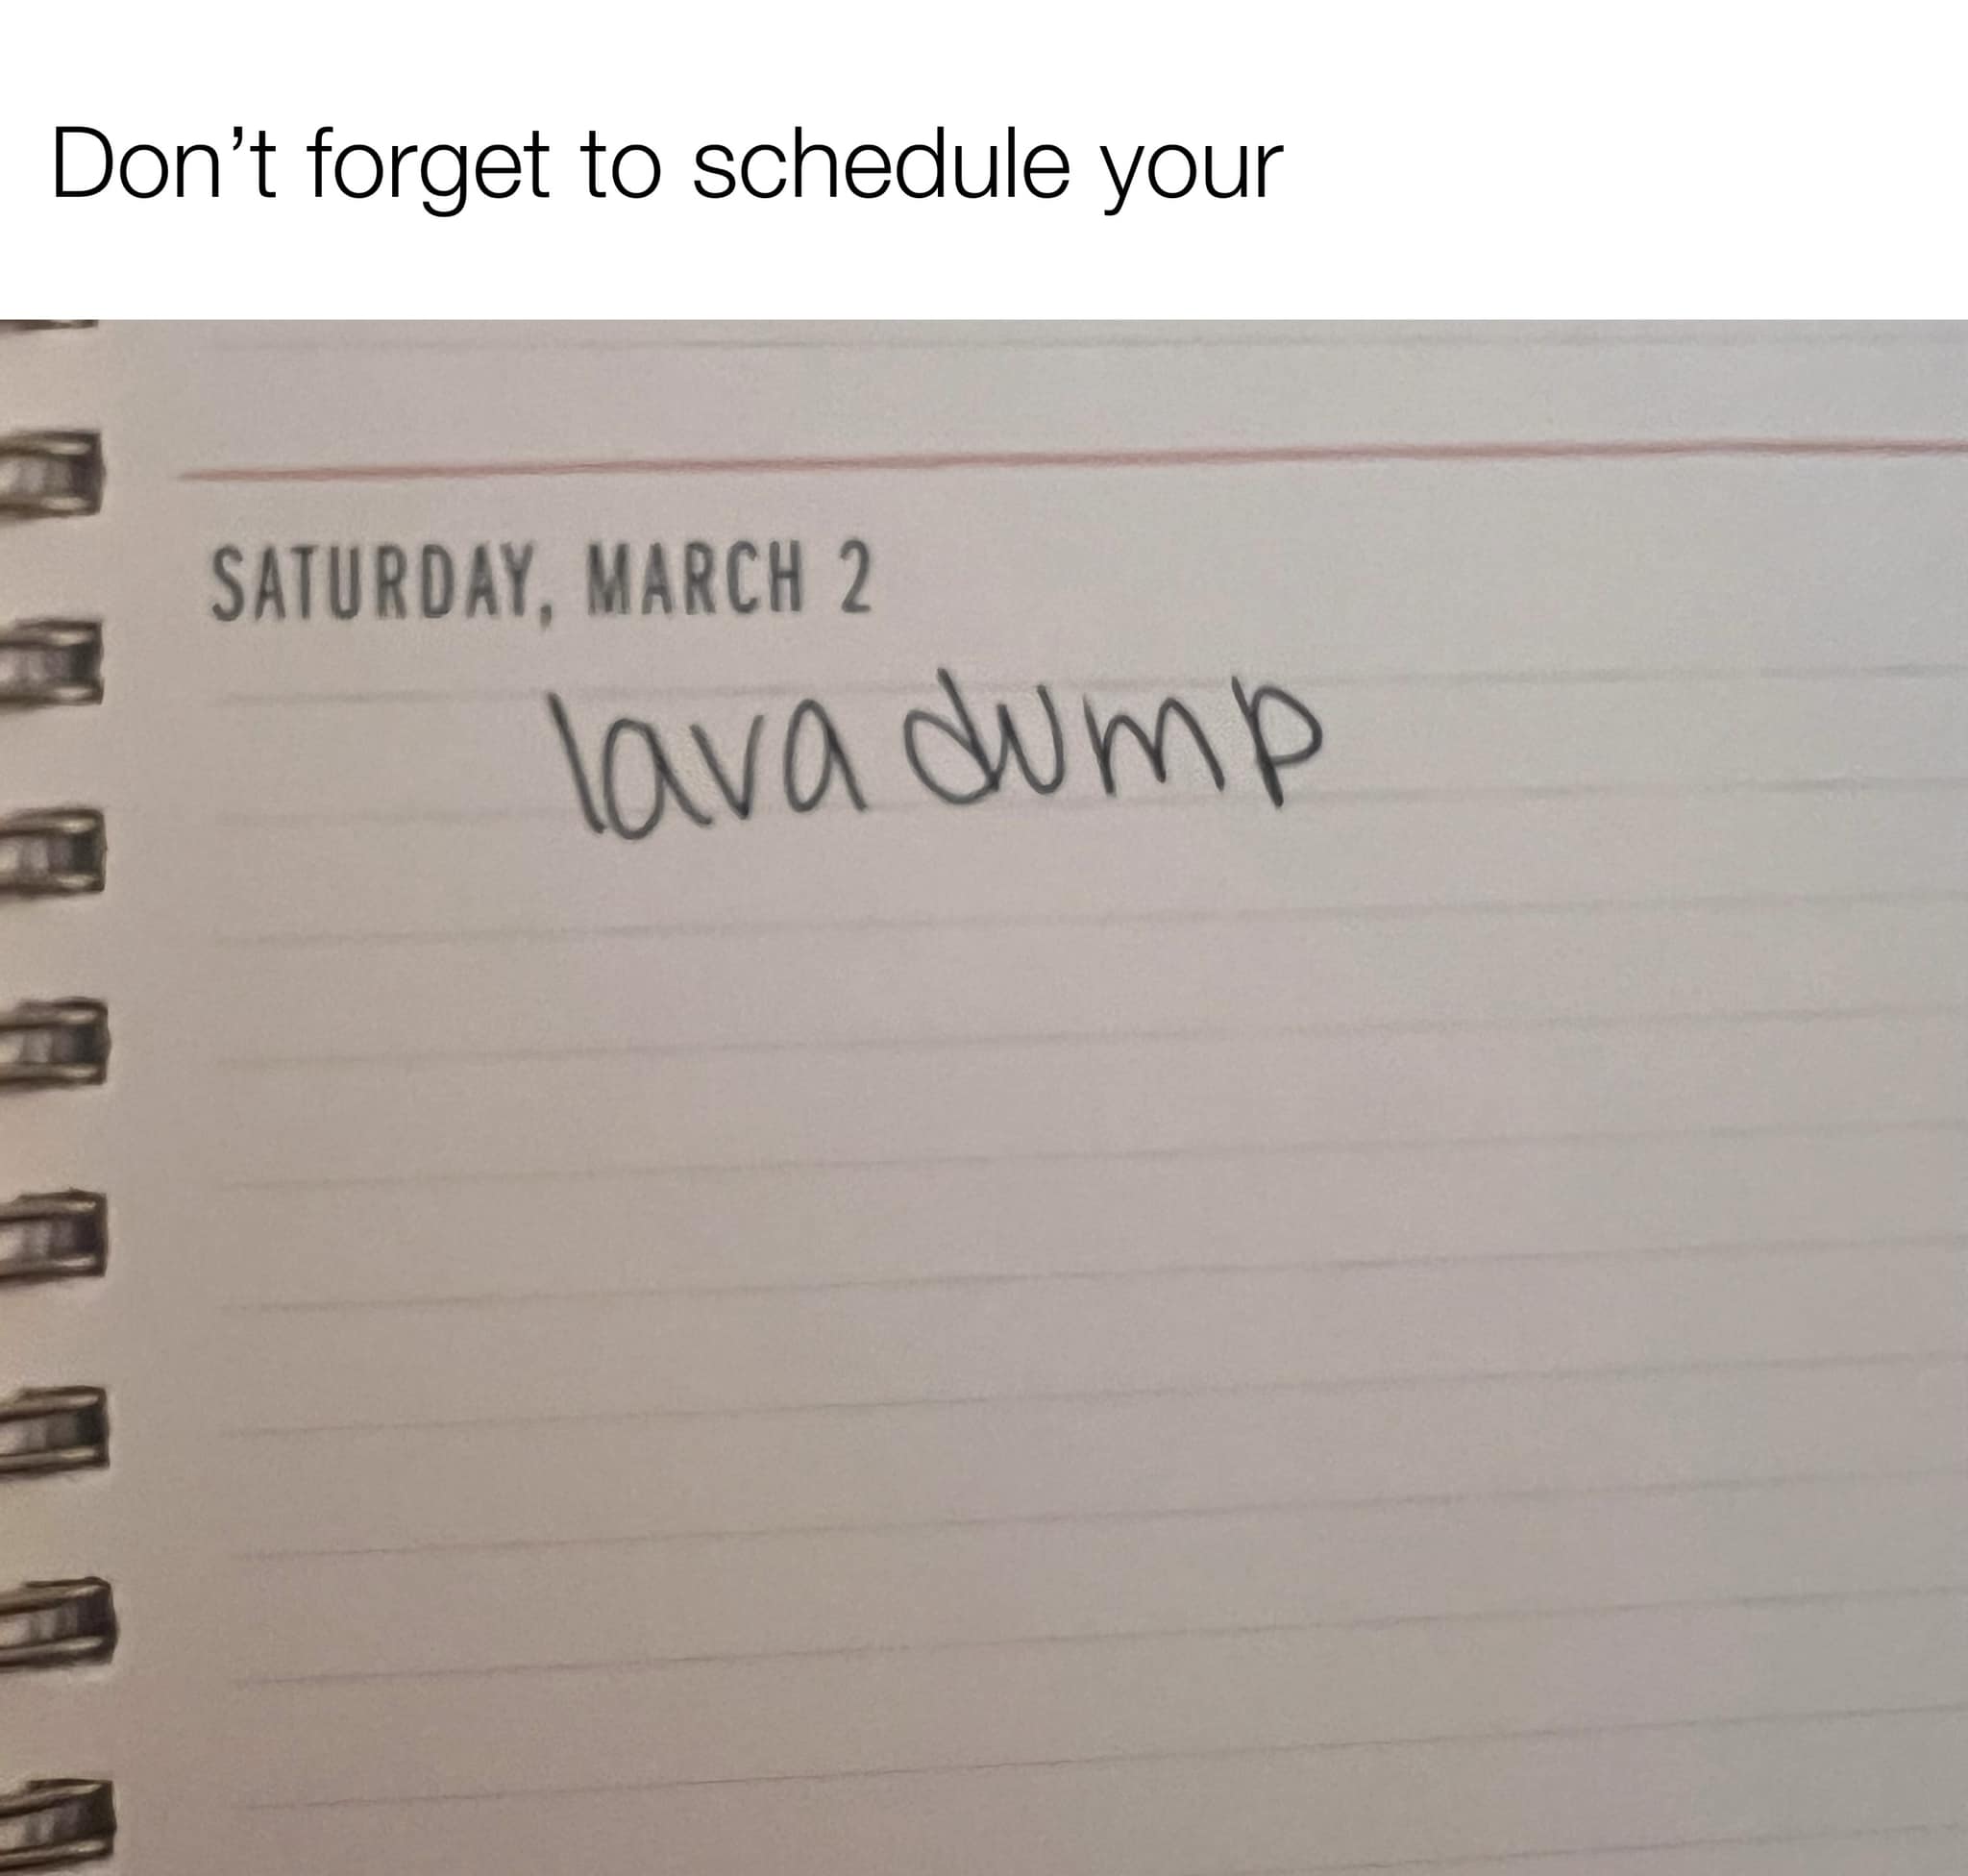 Don’t forget to schedule your
SATURDAY, MARCH 2
lava dump